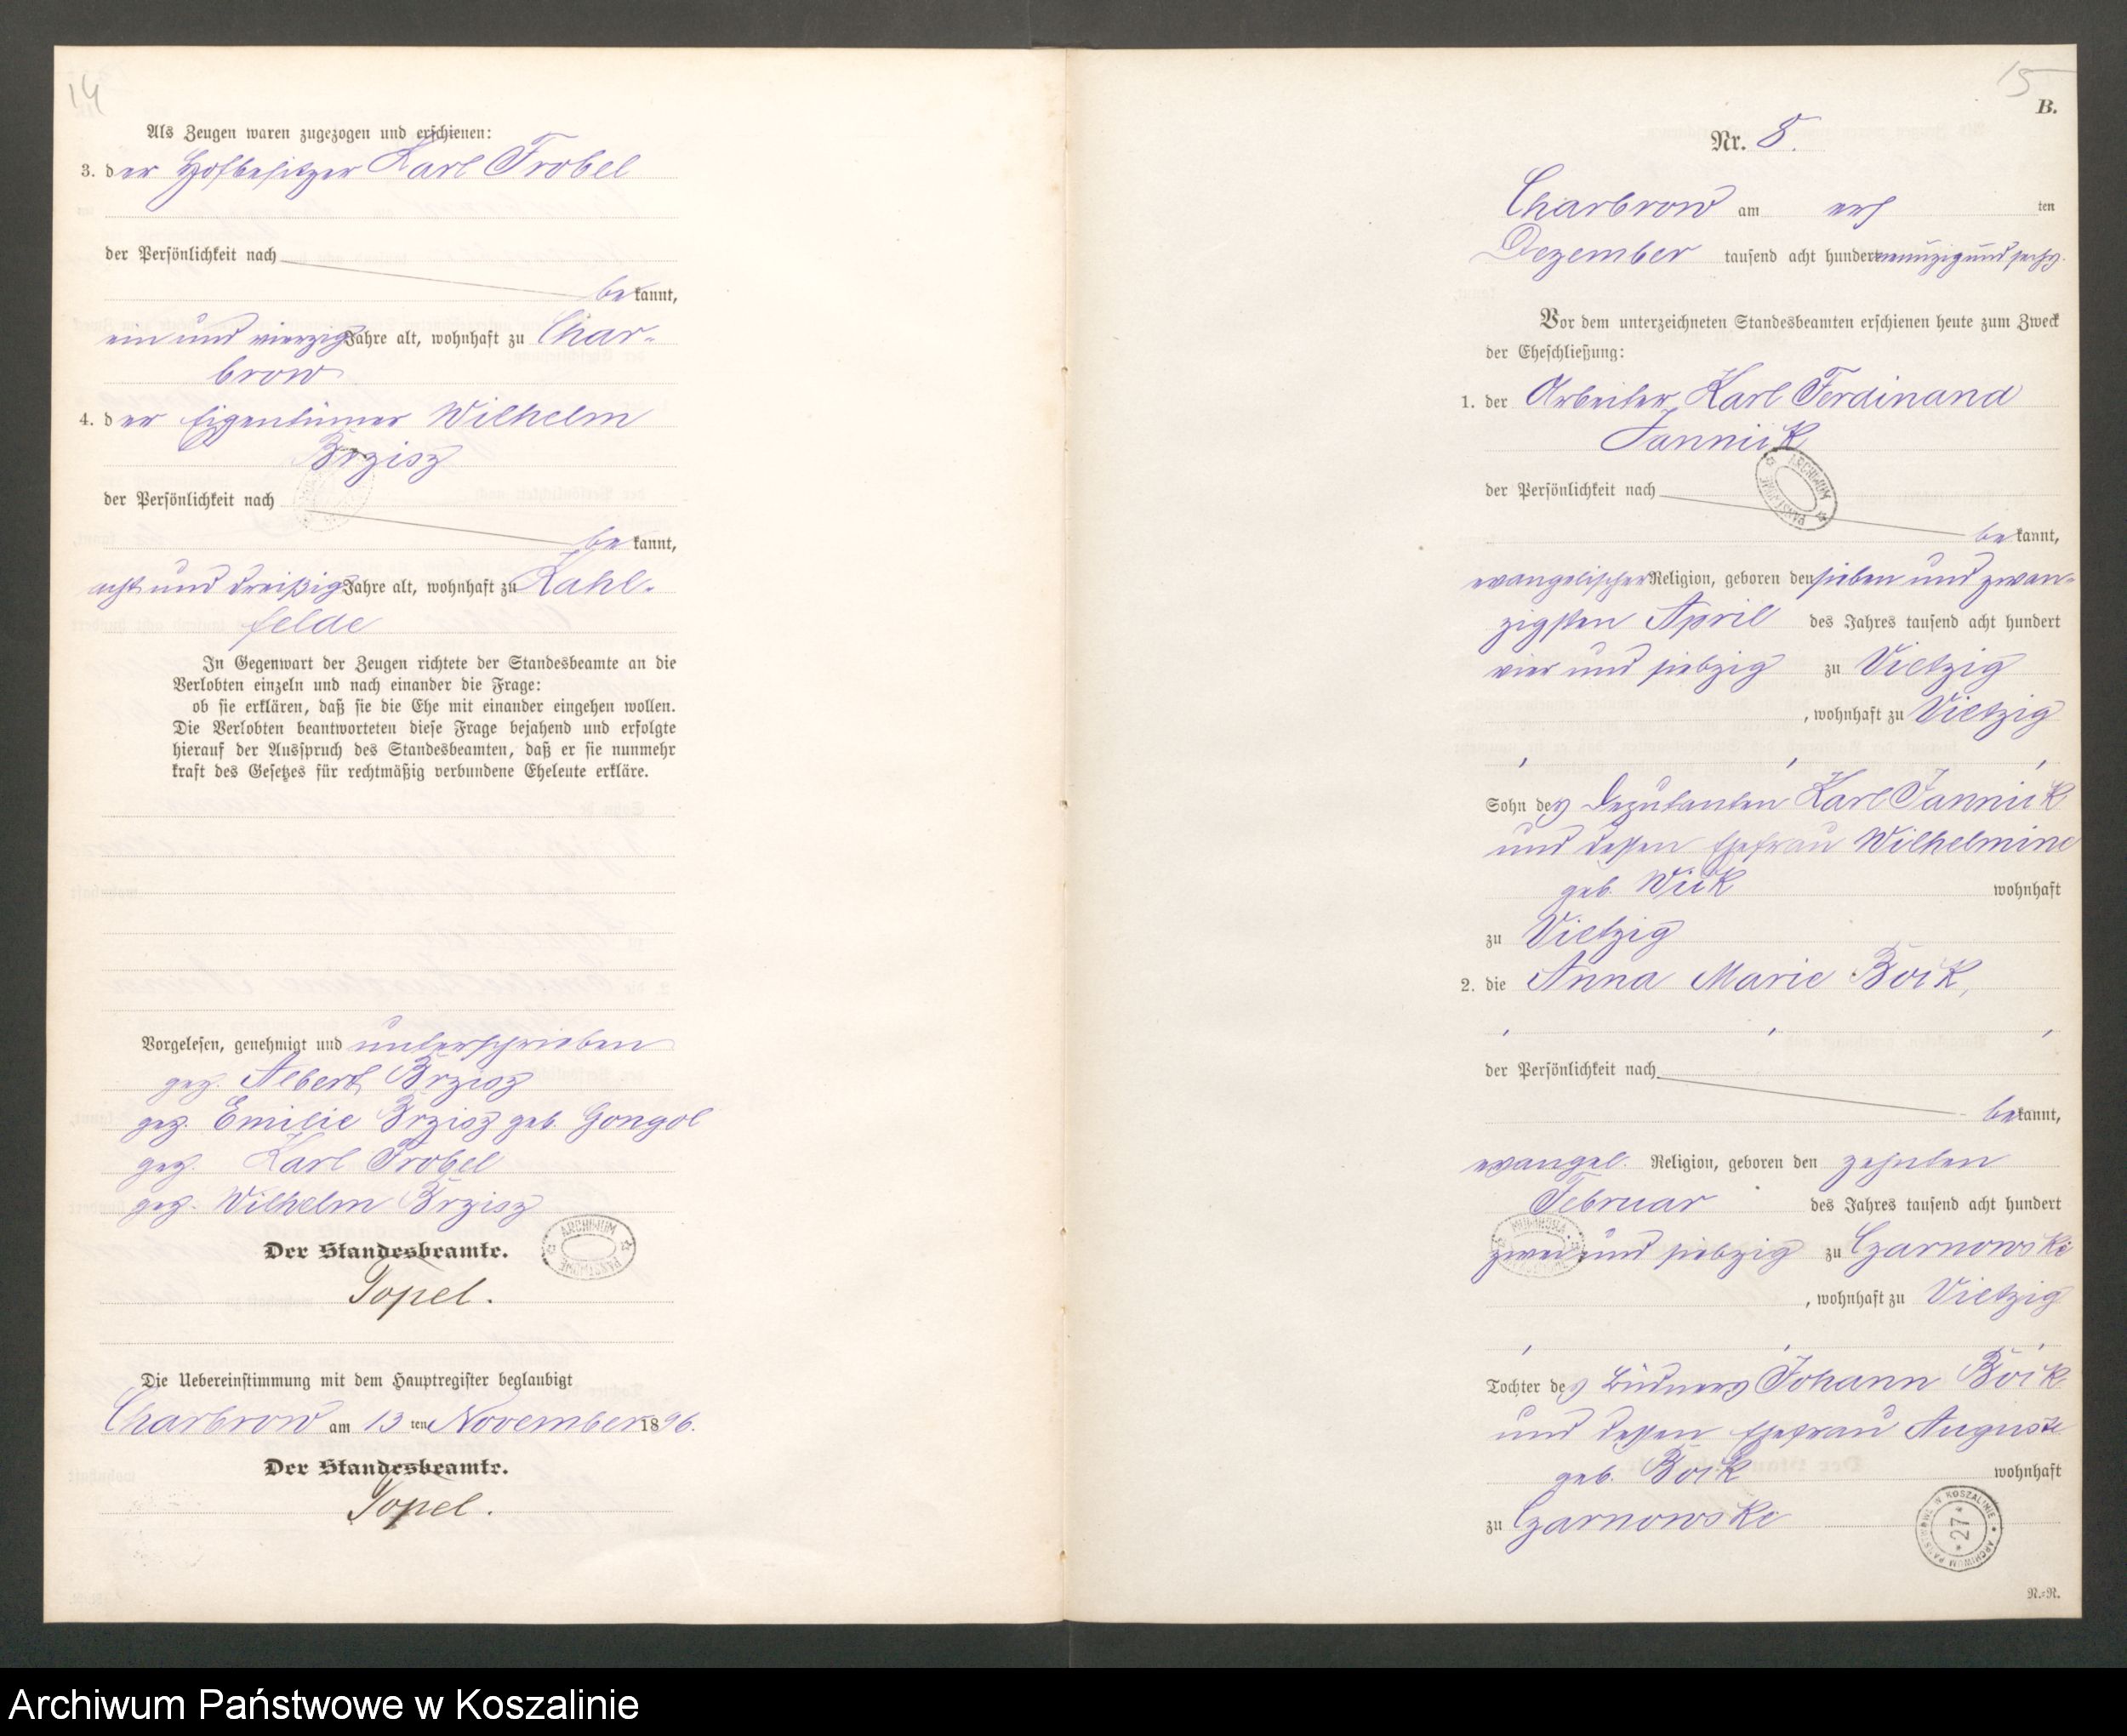 14
Als Zeugen waren zugezogen und erschienen:
3. der Hofbesitzer Karl Frobel
der Persönlichkeit nach
bekannt,
ein und vierzig Jahre alt, wohnhaft zu Char-
brow
4. der Eigentümer Wilhelm
Brzisz
der Persönlichkeit nach
bekannt,
acht und dreißig Jahre alt, wohnhaft zu Kahl-
felde
In Gegenwart der Zeugen richtete der Standesbeamte an die
Verlobten einzeln und nach einander die Frage:
ob sie erklären, daß sie die Ehe mit einander eingehen wollen.
Die Verlobten beantworteten diese Frage bejahend und erfolgte
hierauf der Ausspruch des Standesbeamten, daß er sie nunmehr
kraft des Gesetzes für rechtmäßig verbundene Eheleute erkläre.
Vorgelesen, genehmigt und unterschrieben
gez. Albert Brzisz
gez. Emilie Brzisz geb. Gongol
gez. Karl Frobel
gez. Wilhelm Brzisz
Der Standesbeamte.
Topel.
Die Uebereinstimmung mit dem Hauptregister beglaubigt
Charbrow am 13 ten November 1896.
Der Standesbeamte.
Topel.
15
B.
Nr. 8.
Charbrow am ten
Dezember tausend acht hundert neunzig und sechs.
Vor dem unterzeichneten Standesbeamten erschienen heute zum Zweck
der Eheschließung:
1. der Arbeiter Karl Ferdinand
Jannick
der Persönlichkeit nach
bekannt,
evangelischer Religion, geboren den sieben und zwan-
zigsten April des Jahres tausend acht hundert
vier und siebzig zu Vietzig
, wohnhaft zu Vietzig
Sohn des Deputanten Karl Jannick
und dessen Ehefrau Wilhelmine
geb. Wick wohnhaft
zu Vietzig
2. die Anna Marie Boik,
der Persönlichkeit nach
bekannt,
evangel. Religion, geboren den zehnten
Februar des Jahres tausend acht hundert
zwei und siebzig zu Czarnowske
, wohnhaft zu Vietzig
Tochter des Büdners Johann Boik
und dessen Ehefrau Auguste
geb. Boik wohnhaft
zu Czarnowske
ARCHIWUM PAŃSTWOWE W KOSZALINIE
*27*
R.=R.
ARCHIWUM PAŃSTWOWE
Archiwum Państwowe w Koszalinie